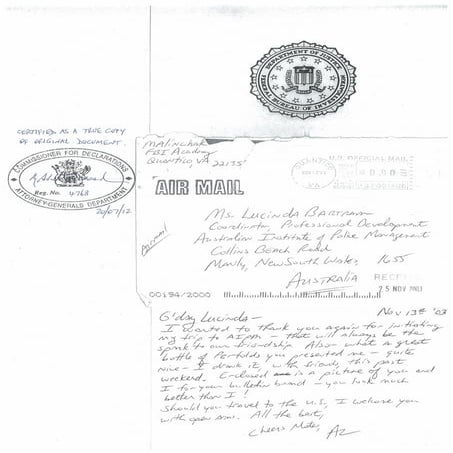 DEPARTMENT OF JUSTICE
FEDERAL BUREAU OF INVESTIGATION
CERTIFIED AS A TRUE COPY
OF ORIGINAL DOCUMENT.
COMMISSIONER FOR DECLARATIONS
REG. No. 4768
ATTORNEY-GENERALS DEPARTMENT
20/07/12
MAlinchak
FBI Academy
Quantico, VA 22135
U.S. OFFICIAL MAIL
AIR MAIL
Ms. Lucinda Bartram
Coordinator, Professional Development
Australian Institute of Police Management
Collins Beach Road
Manly, New South Wales 1655
AUSTRALIA
00194/2000
NOV 2003
Nov 13th '03
G'day Lucinda-
I wanted to thank you again for initiating
my trip to AIPM - that will always be the
spark to our friendship. Also - what a great
bottle of Penfolds you presented me - quite
nice - I drank it, with friends, this past
weekend. Enclosed is a picture of you and
I for your bulletin board - you look much
better than I!
Should you travel to the U.S., I welcome you
with open arms. All the best,
Cheers Mate, Az